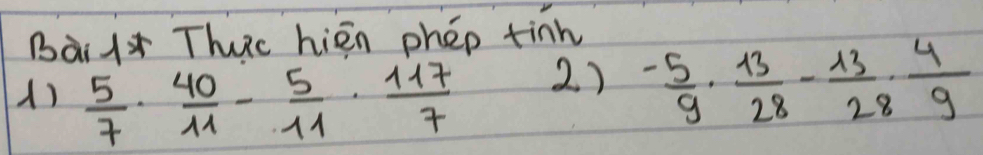 Bài 1* Thực hiện phép tính
1) 5/7 . 40/11 - 5/11 . 117/7 2) -5/9 . 13/28 - 13/28 . 4/9